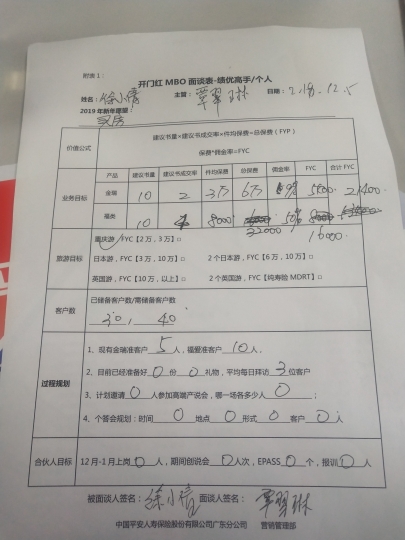 附表1：
开门红 MBO 面谈表-绩优高手/个人
姓名：徐小倩 主管：覃翠琳 日期：2018.12.5
2019年新年愿望：
买房
价值公式 建议书量×建议书成交率×件均保费=总保费（FYP）
保费*佣金率=FYC
业务目标 产品 建议书量 建议书成交率 件均保费 总保费 佣金率 FYC 合计 FYC
金瑞 10 2 3万 6万 9% 5400 21400
福类 10 8000 50%
32000 16000
旅游目标 重庆游，FYC【2万，3万】□
日本游，FYC【3万，10万】□ 2个日本游，FYC【6万，10万】□
英国游，FYC【10万，以上】□ 2个英国游，FYC【纯寿险 MDRT】□
客户数 已储备客户数/需储备客户数
30, 40
过程规划 1、现有金瑞准客户 5 人，福类准客户 10 人，
2、目前已经准备好 0 份 0 礼物，平均每日拜访 3 位客户
3、计划邀请 0 人参加高端产说会，哪一场各多少人 0 ；
4、个答会规划：时间 0 地点 0 形式 0 客户 0 人
合伙人目标 12月-1月上岗 0 人，期间创说会 0 人次，EPASS 0 个，报训 0 人
被面谈人签名：徐小倩 面谈人签名：覃翠琳
中国平安人寿保险股份有限公司广东分公司 营销管理部